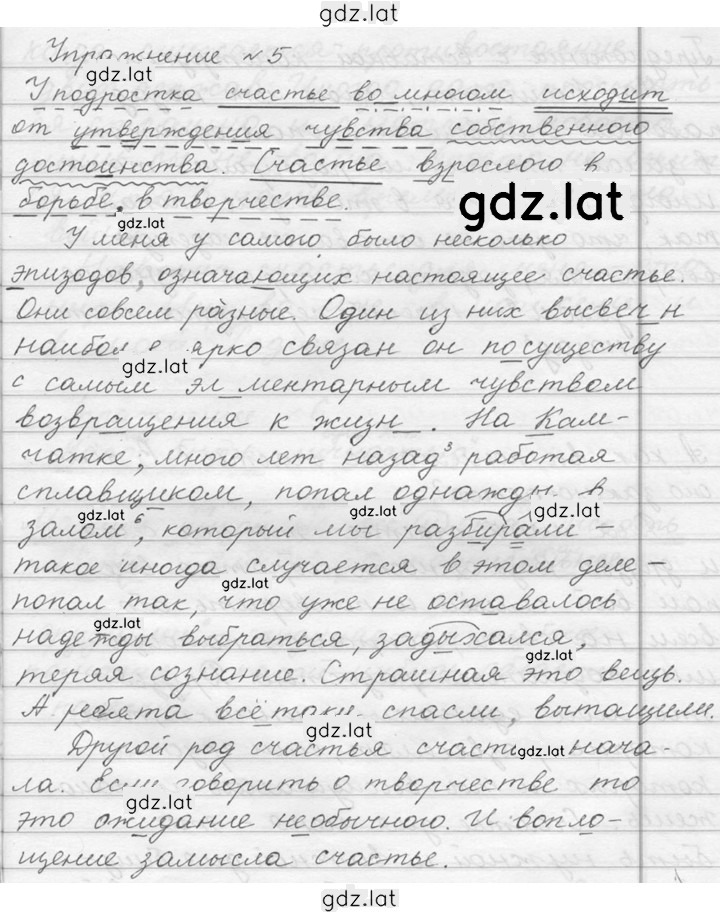 gdz.lat
Упражнение № 5
gdz.lat
У подростка счастье во многом исходит
от утверждения чувства собственного
достоинства. Счастье взрослого в
борьбе, в творчестве.
gdz.lat
gdz.lat
У меня у самого было несколько
эпизодов, означающих настоящее счастье.
Они совсем разные. Один из них высвеч н
ярко связан он посуществу
gdz.lat
с самым эл ментарным чувством
возвращения к жизн . На Кам-
чатке, много лет назад 3 работая
сплавщиком, попал однажды в
gdz.lat
залом 6, который мы разбирали -
такое иногда случается в этом деле -
gdz.lat
попал так, что уже не оставалось
надежды выбраться, задыхался,
gdz.lat
gdz.lat
теряя сознание. Страшная это вещь.
А ребята всё таки спасли, вытащили.
gdz.lat
Другой род счастья нача-
gdz.lat
ла. Если говорить о творчестве то
gdz.lat
это ожидание необычного. И вопло-
щение замысла счастье.
gdz.lat